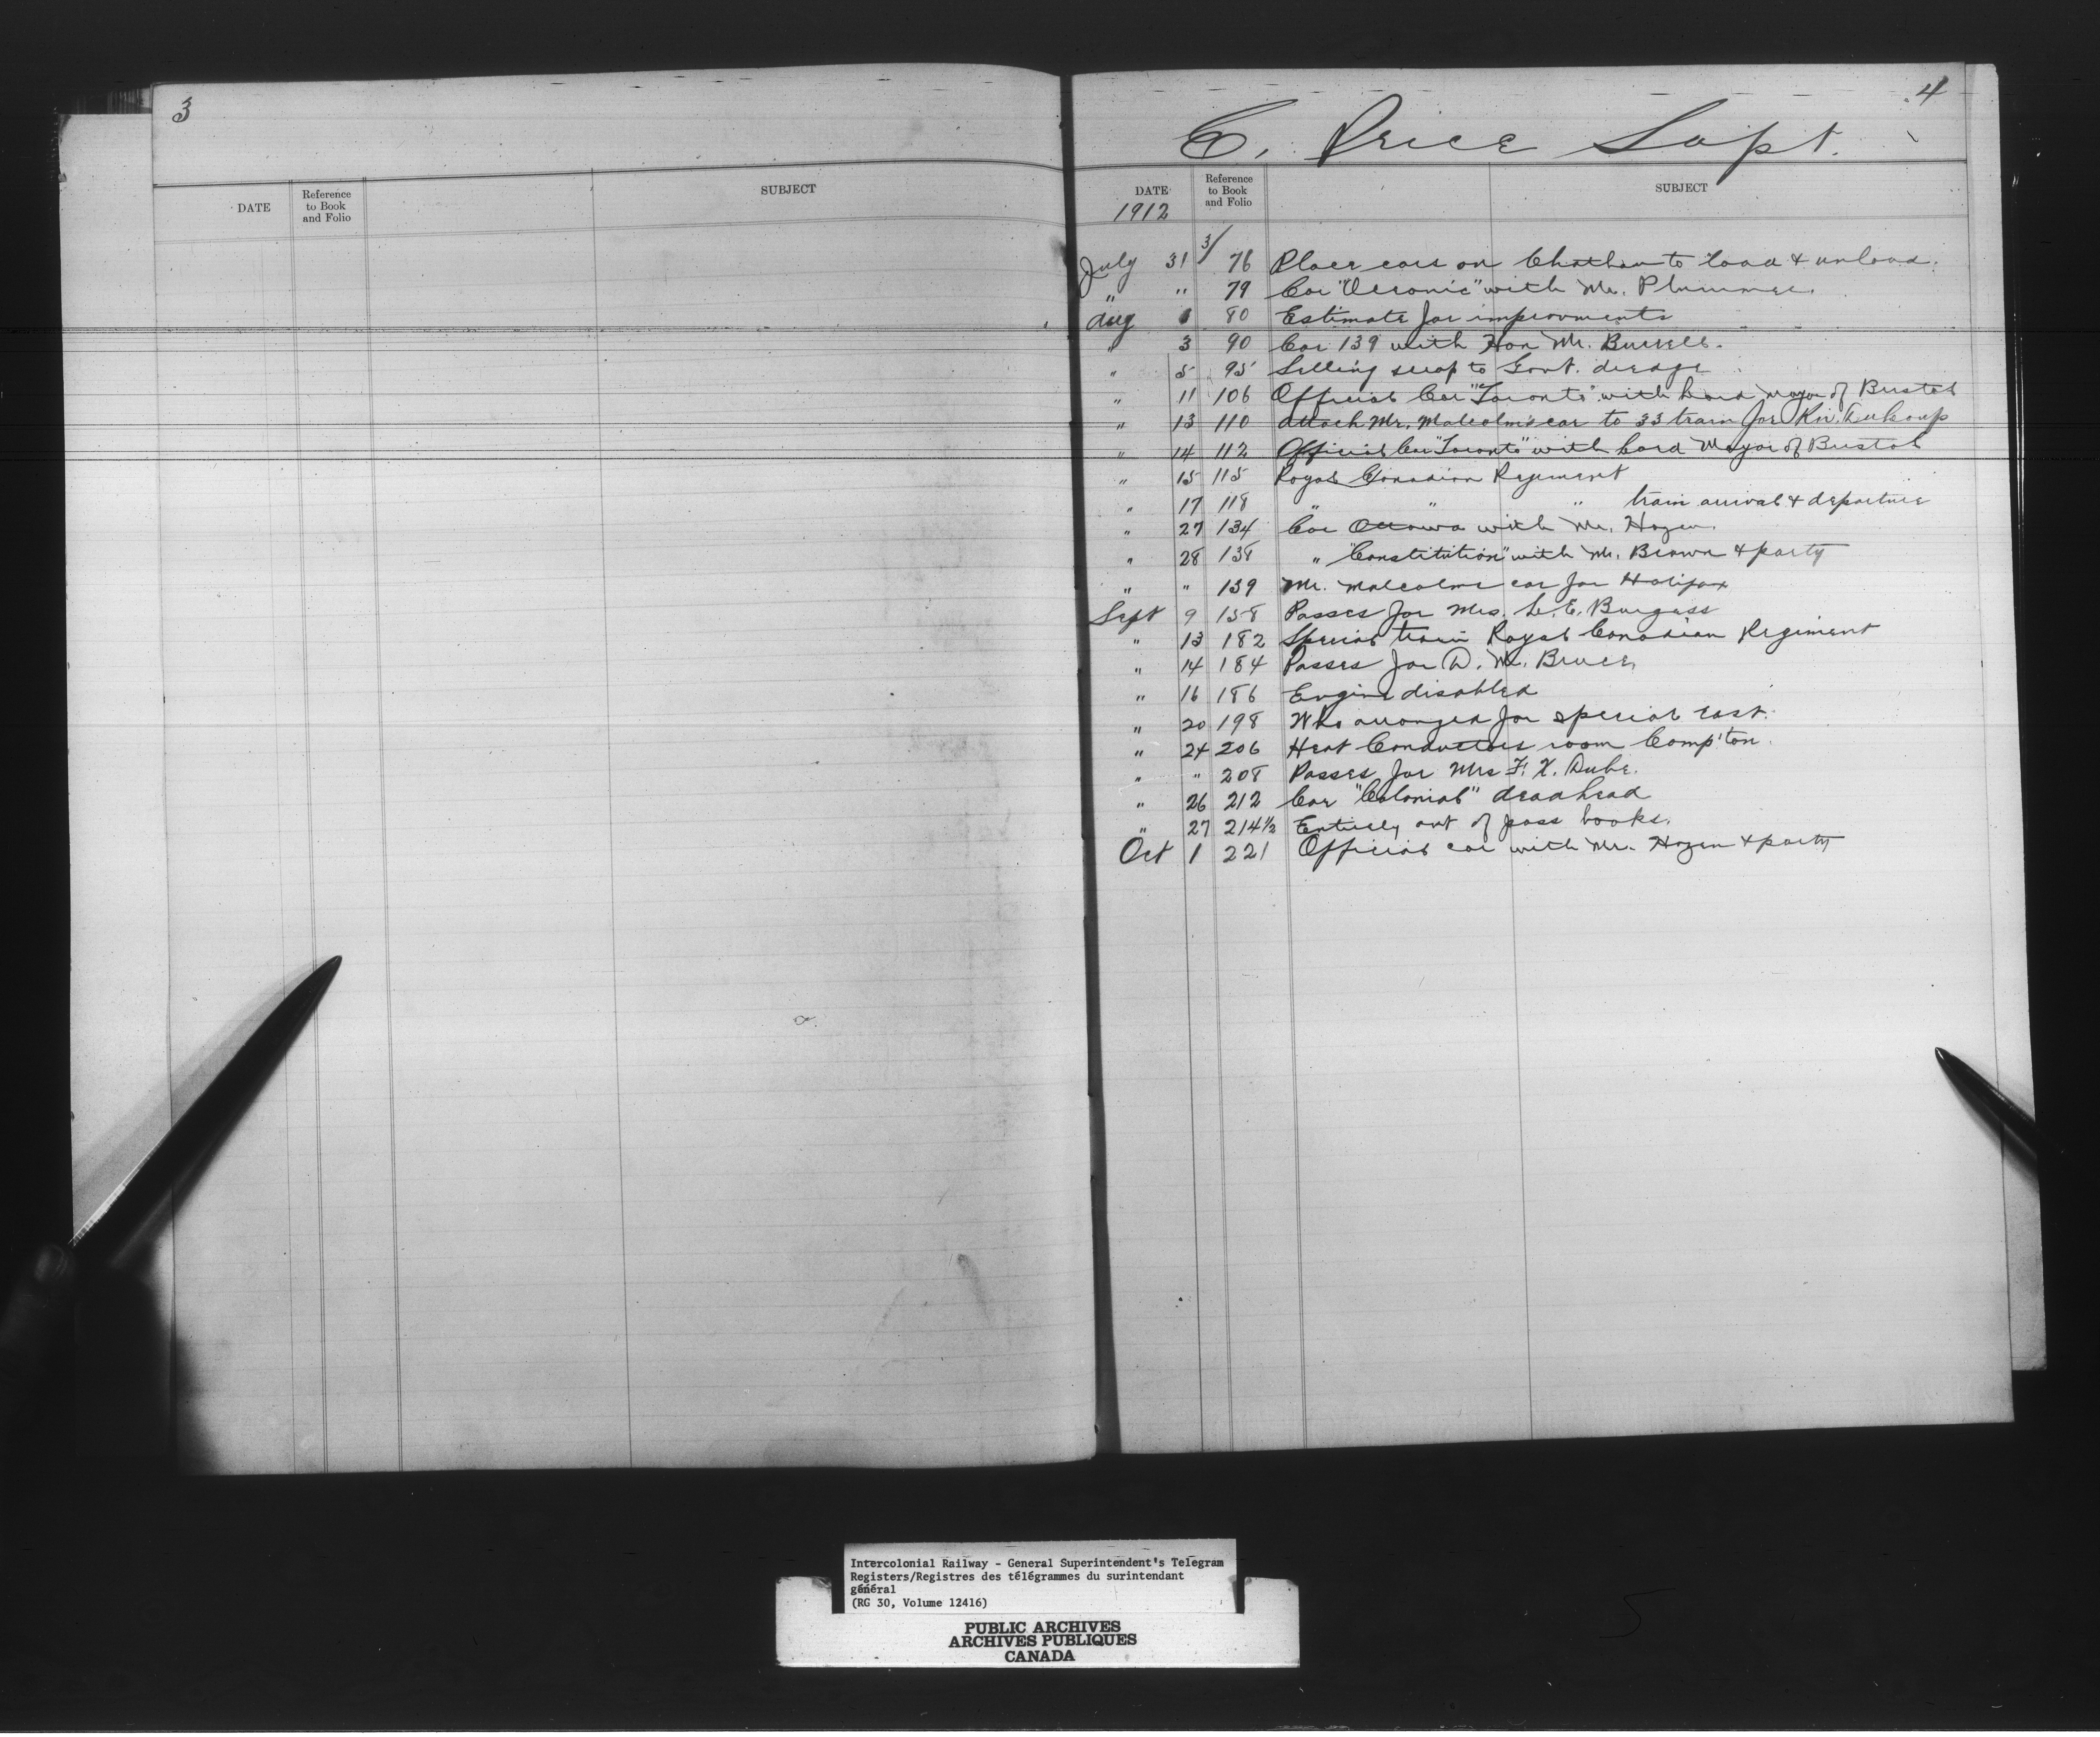 3
DATE
Reference
to Book
and Folio
SUBJECT
4
C. Price Supt.
DATE
Reference
to Book
and Folio
SUBJECT
1912
July 31 3/ 76 Place cars on Chatham to load & unload.
" " 79 Car "Oceonic" with Mr. Plummer.
Aug 1 80 Estimate for improvments
" 3 90 Car 139 with Hon Mr. Burrell.
" 5 95 Selling scrap to Govt. dredge
" 11 106 Official Car "Toronto" with Lord Mayor of Bristol
" 13 110 Attach Mr. Malcolm's car to 33 train for Riv. DuLoup
" 14 112 Official Car "Toronto" with Lord Mayor of Bristol
" 15 115 Royal Canadian Regiment
" 17 118 " " " train arrival & departure
" 27 134 Car Ottawa with Mr. Hazen.
" 28 138 " "Constitution" with Mr. Brown & party
" " 139 Mr. Malcolms car for Halifax
Sept 9 158 Passes for Mrs. L. E. Burgess
" 13 182 Special train Royal Canadian Regiment
" 14 184 Passes for D. M. Bruce
" 16 186 Engine disabled
" 20 198 Who arranged for special east.
" 24 206 Heat Conductors room Comp'ton.
" " 208 Passes for Mrs F. X. Dube.
" 26 212 Car "Colonial" deadhead
" 27 214½ Entirely out of pass books.
Oct 1 221 Official car with Mr. Hazen & party
Intercolonial Railway - General Superintendent's Telegram
Registers/Registres des télégrammes du surintendant
général
(RG 30, Volume 12416)
PUBLIC ARCHIVES
ARCHIVES PUBLIQUES
CANADA